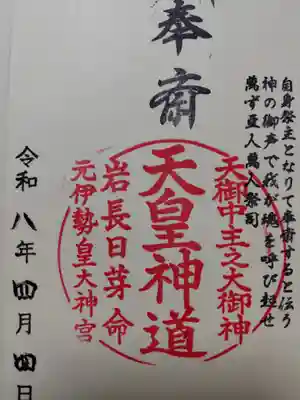 自身祭主となりて奉斎すると伝う
神の御声で我が魂を呼び起せ
萬ず亜人萬入祭司
奉斎
天御中主之大御神
天皇神道
岩長日芽命
元伊勢皇大神宮
令和八年四月四日